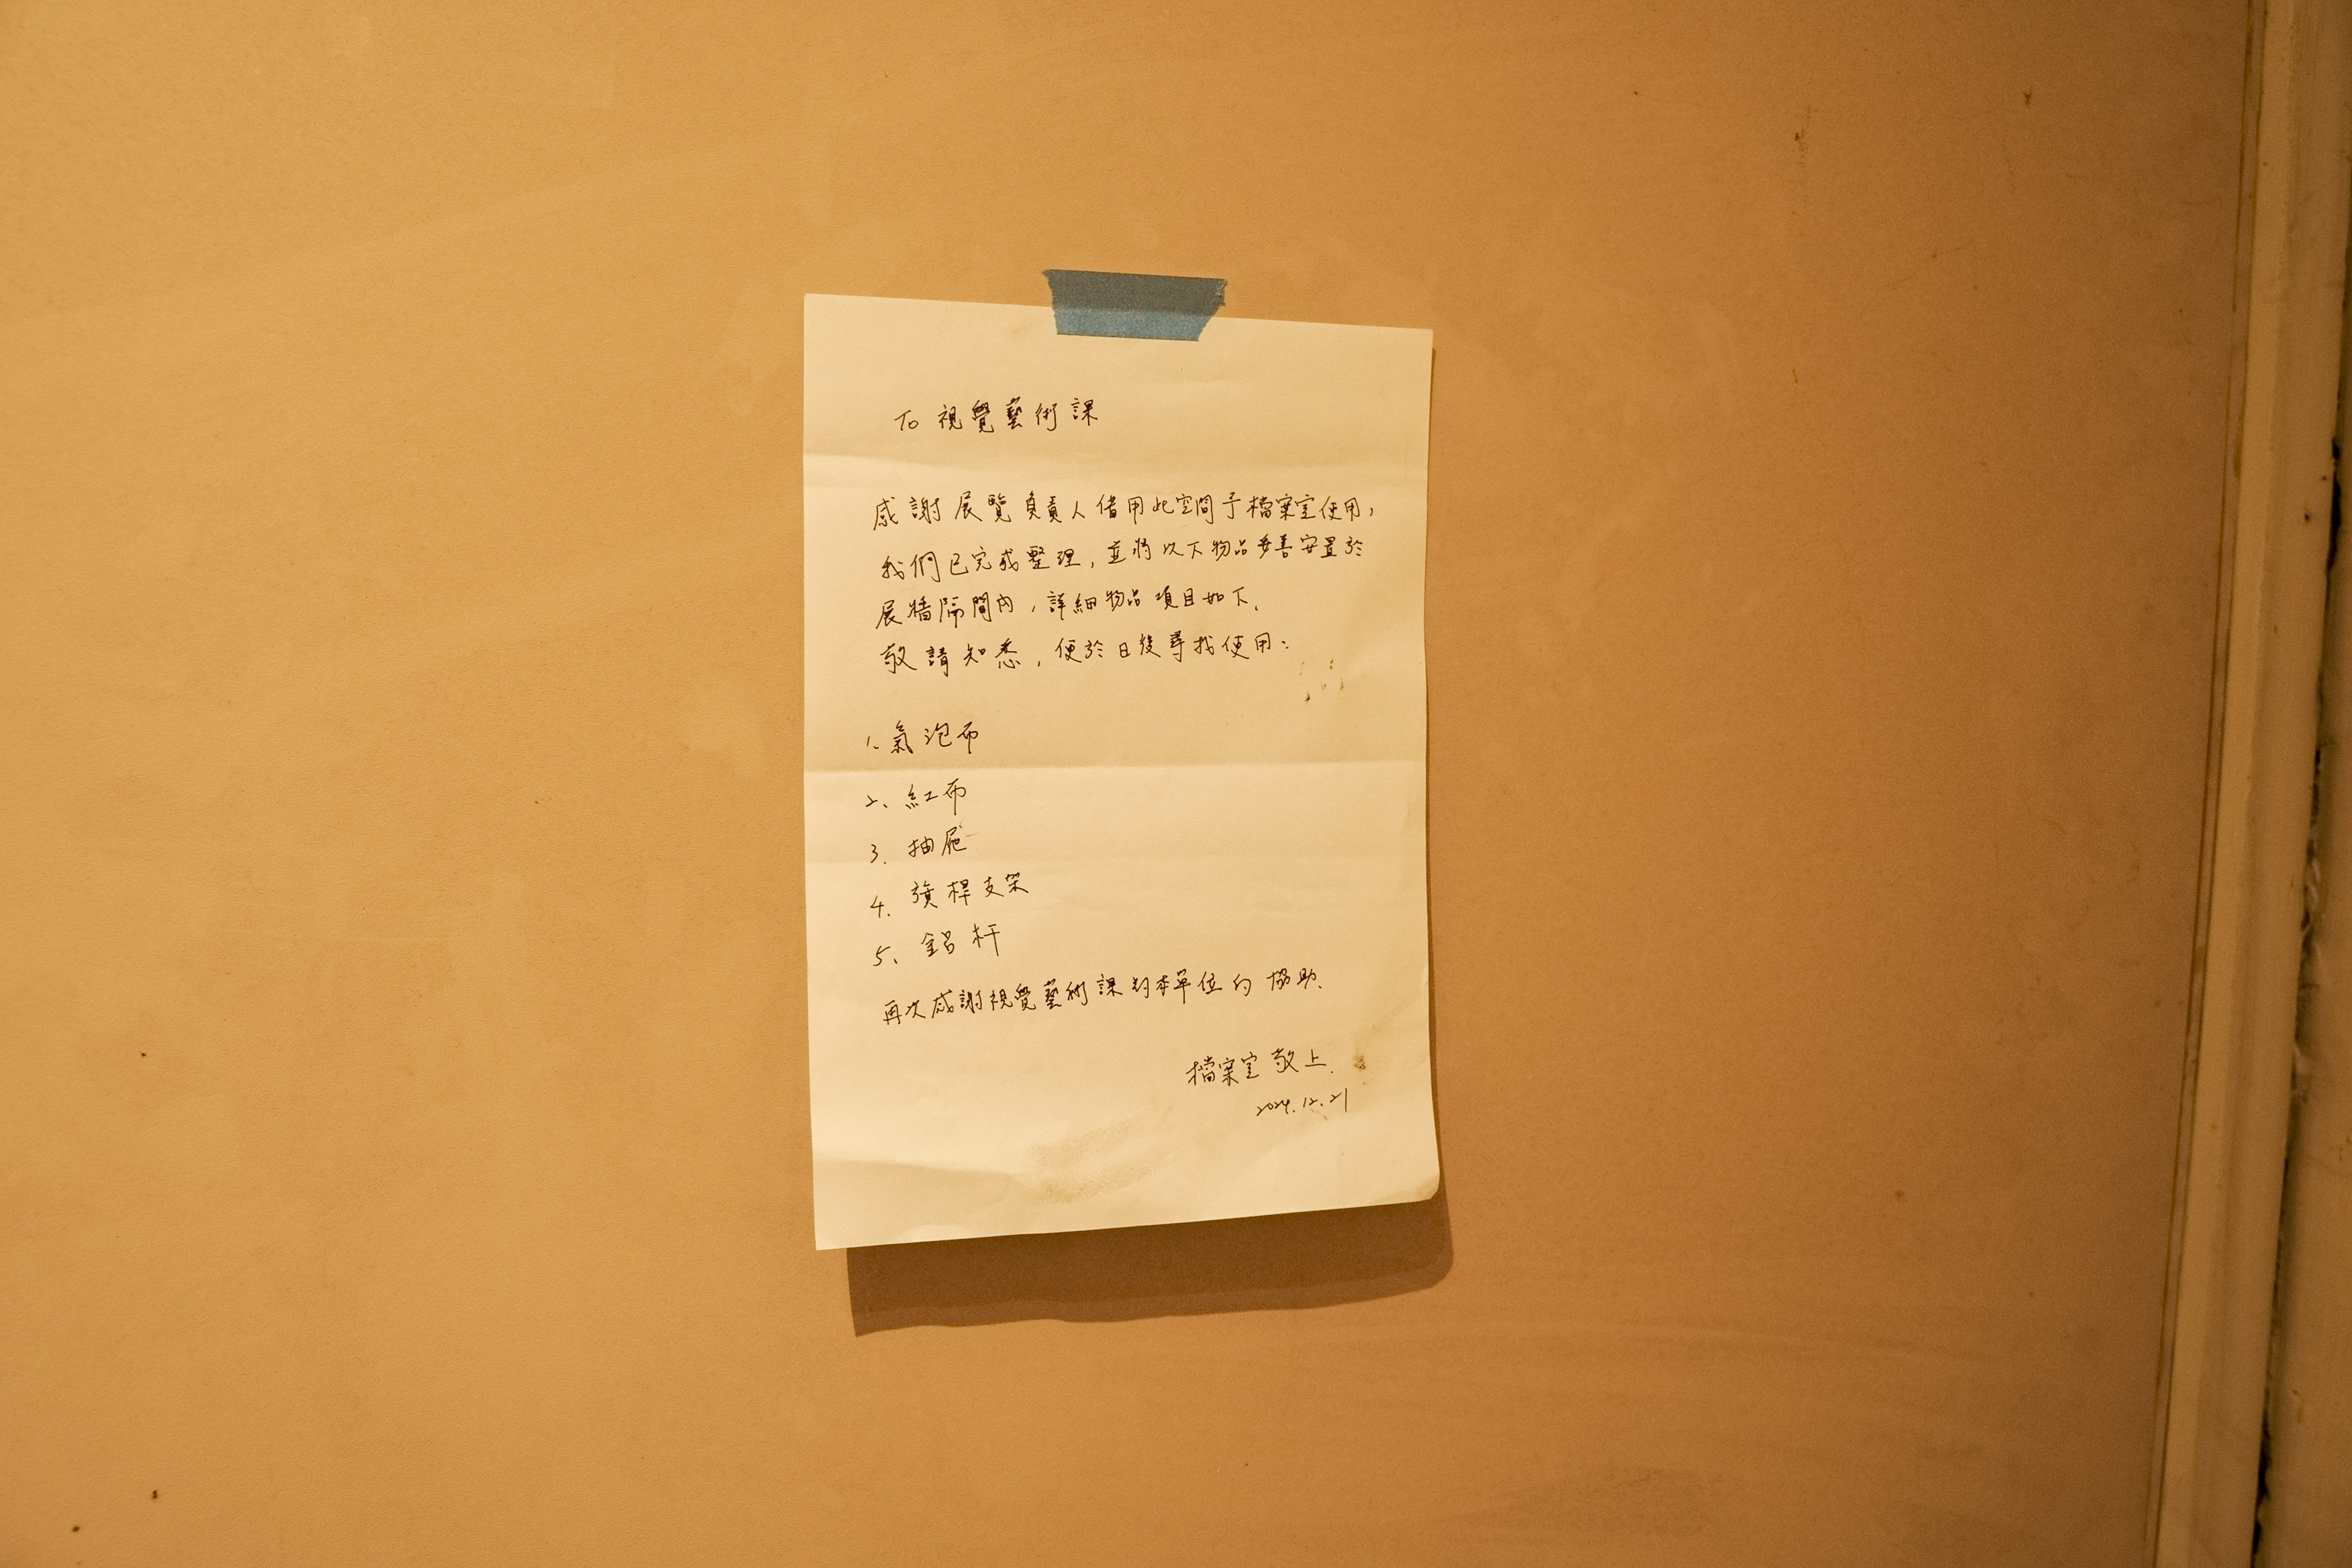 To 視覺藝術課
感謝展覽負責人借用此空間予檔案室使用,
我們已完成整理,並將以下物品妥善安置於
展牆隔間內,詳細物品項目如下.
敬請知悉,便於日後尋找使用:
1、氣泡布
2、紅布
3. 抽屜
4. 旗桿支架
5、鋁杆
再次感謝視覺藝術課對本單位的協助.
檔案室敬上.
2024.12.21